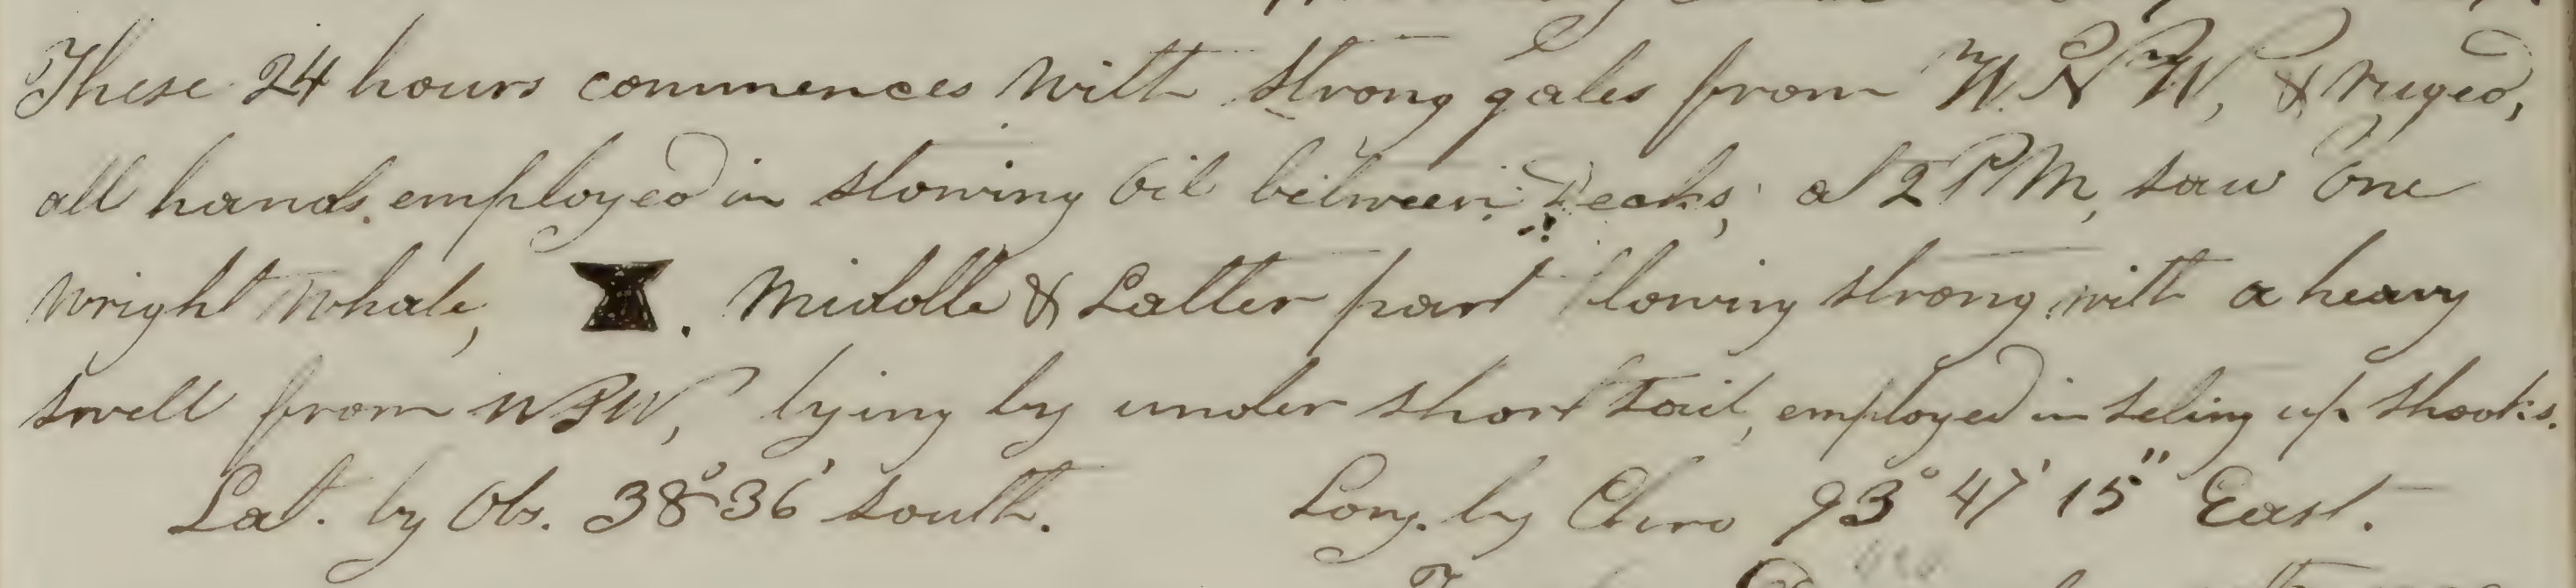 These 24 hours commences with strong gales from W.N.W, & ruged,
all hands employed in stowing Oil between Decks, at 2 PM, saw One
Wright Whale, . Middle & Latter part blowing strong with a heavy
swell from lying by under short sail, employed in seting up shooks.
Lat. by Obs. 38° 36' south. Long. by Chro 93° 47' 15" East.